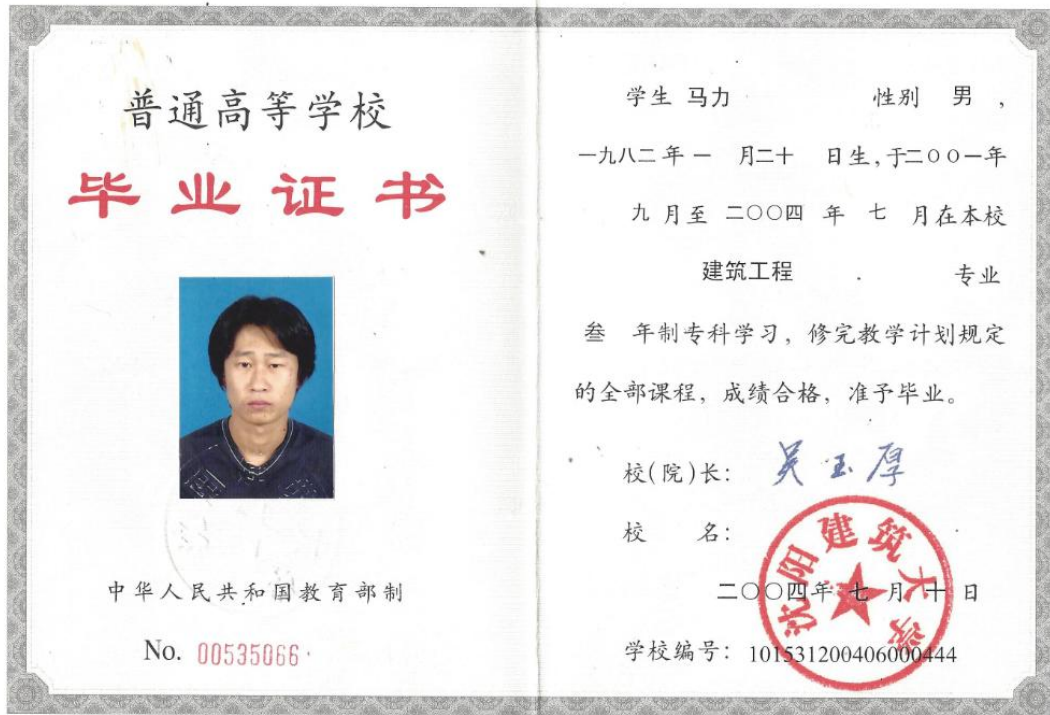 普通高等学校
毕业证书
中华人民共和国教育部制
No. 00535066
学生 马力 性别 男，
一九八二年一 月二十 日生,于二〇〇一年
九月至 二〇〇四 年 七 月在本校
建筑工程 专业
叁 年制专科学习，修完教学计划规定
的全部课程，成绩合格，准予毕业。
校(院)长: 吴玉厚
校 名:
沈阳建筑大学
二〇〇四年 七 月 十 日
学校编号: 101531200406000444